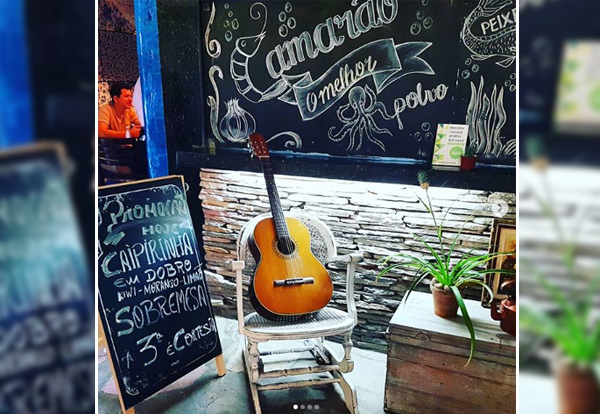 Camarão
PEIXE
O melhor
polvo
PROMOÇÃO
HOJE
CAIPIRINHA
EM DOBRO
KIWI-MORANGO-LIMÃO
SOBREMESA
3ª É CORTESIA